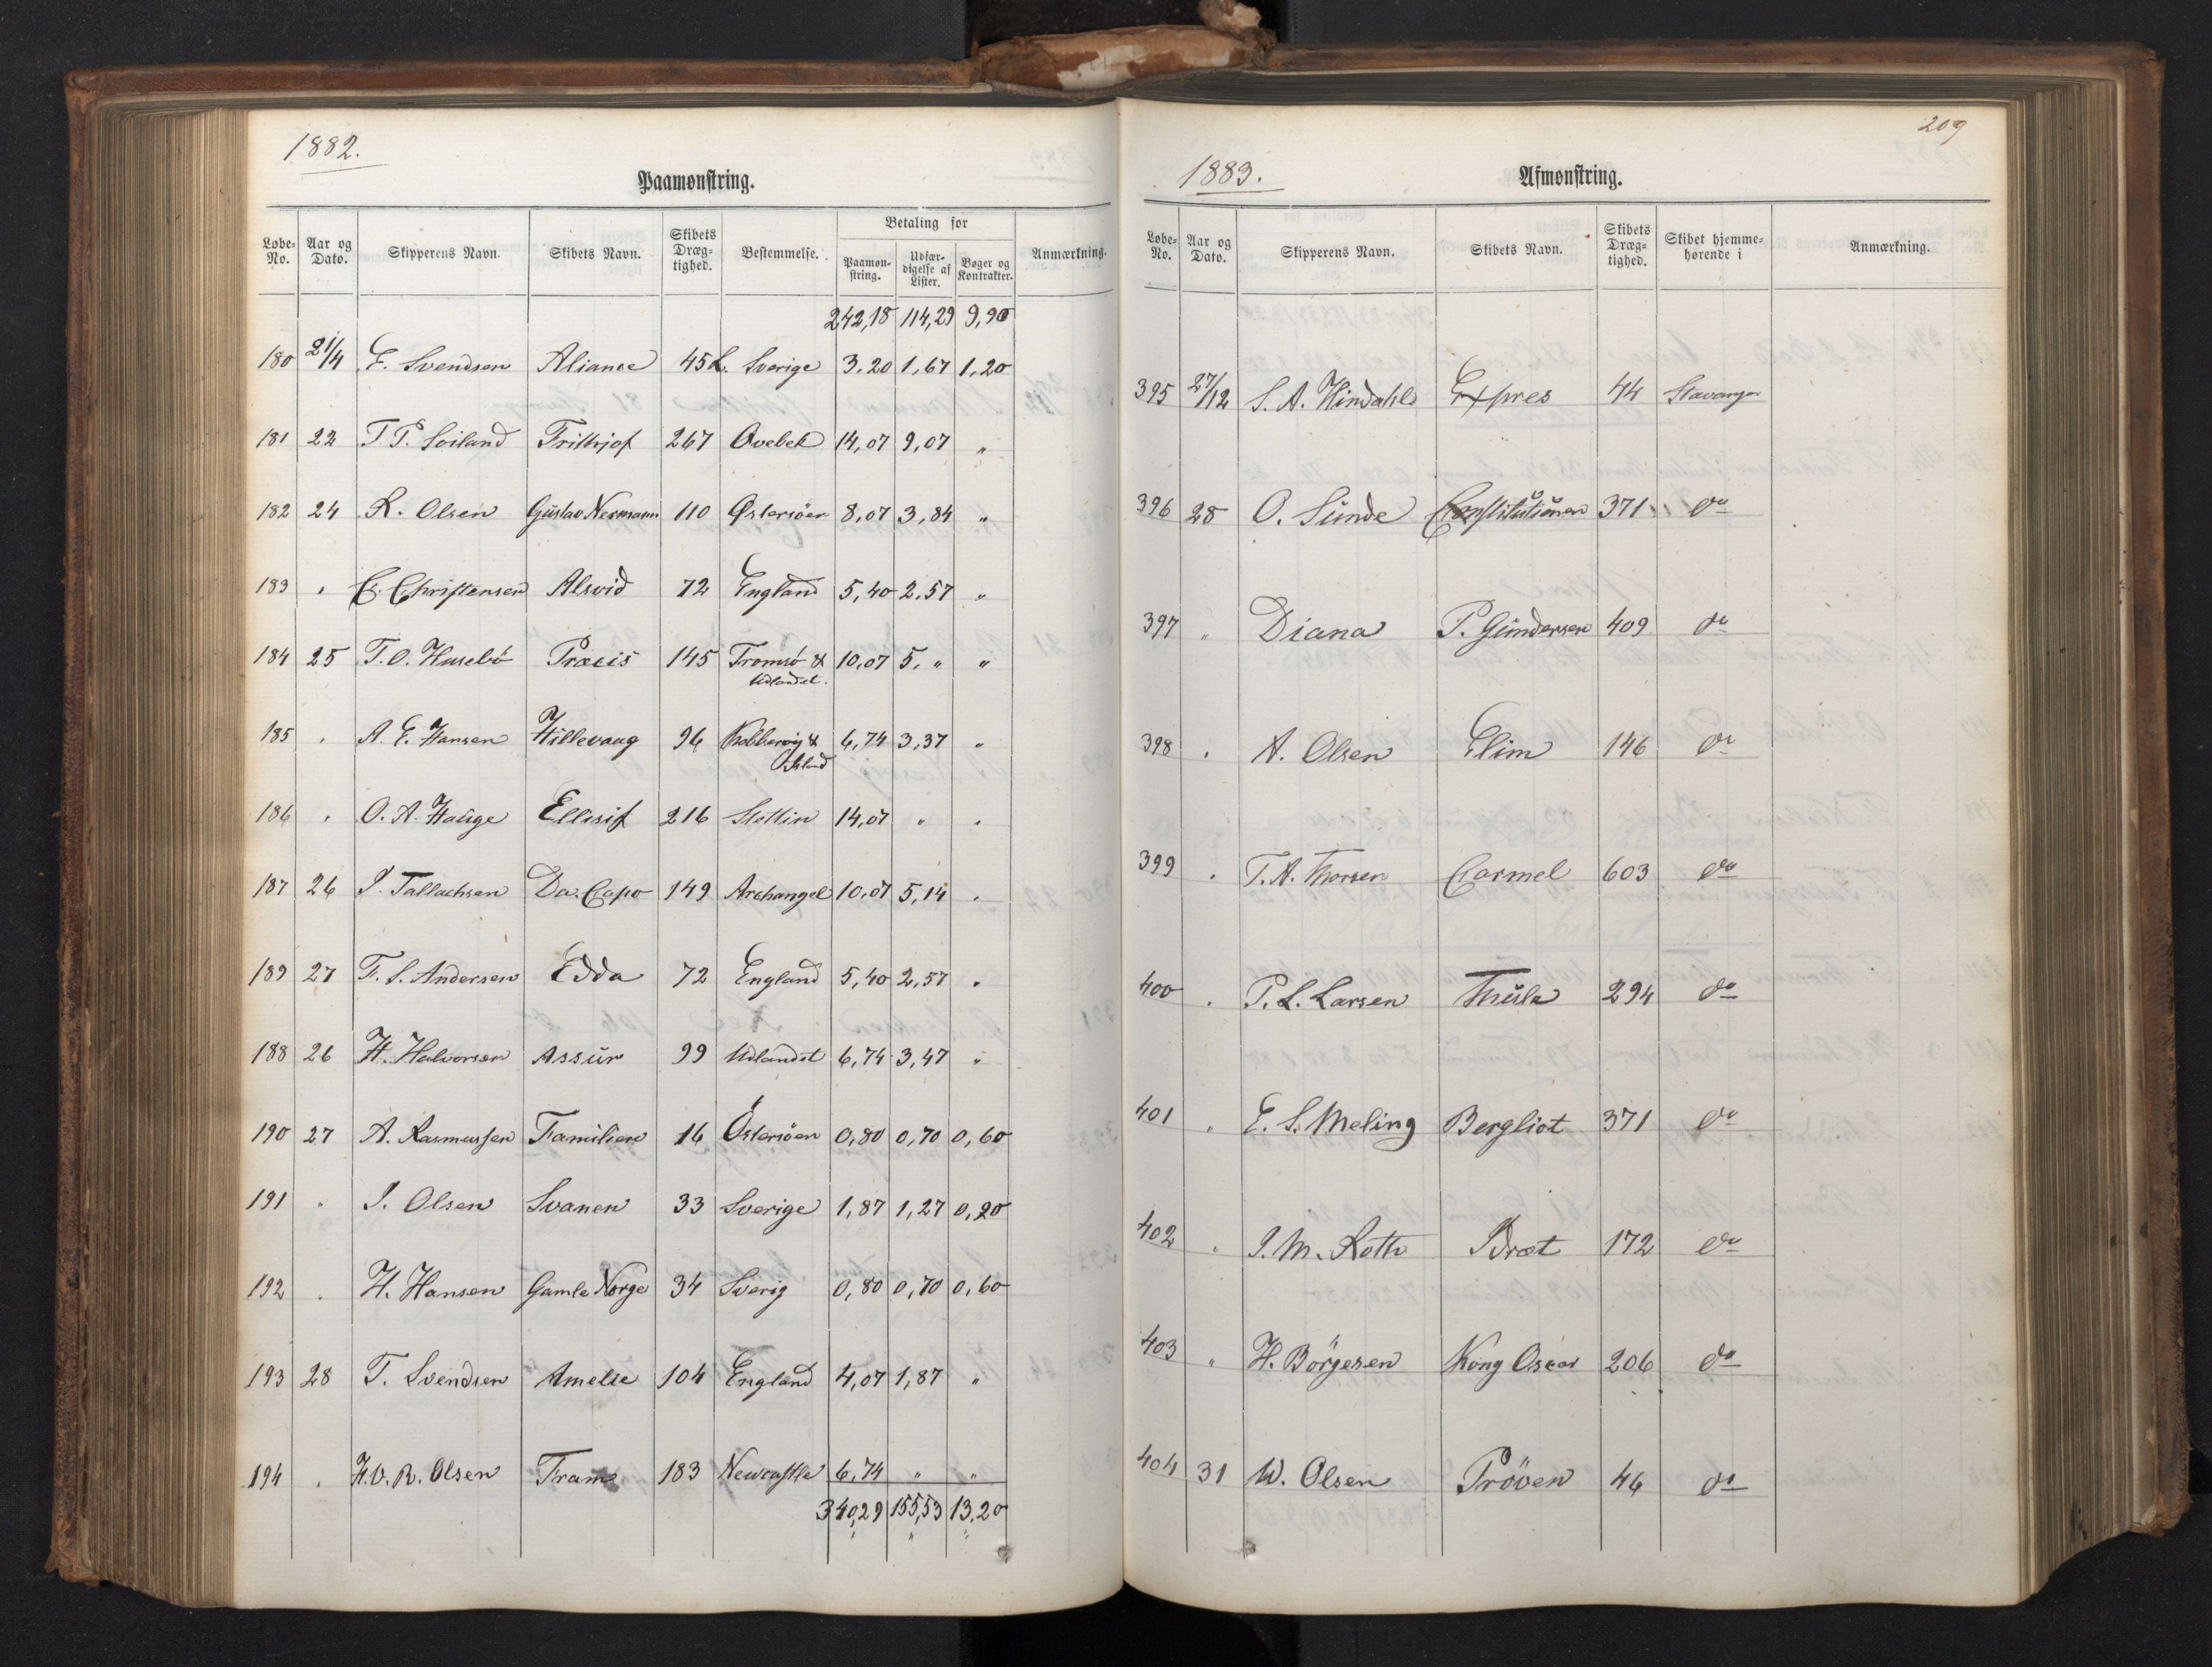 1882.
Paamønstring.
Løbe-No. Aar og Dato. Skipperens Navn. Skibets Navn. Skibets Dræg-tighed. Bestemmelse. Betaling for Paamøn-string. Udfær-digelse af Lister. Bøger og Kontrakter. Anmærkning.
242,18 114,29 9,90
180 21/4 E. Svendsen Aliance 45 L. Sverige 3.20 1,67 1,20
181 22 T. P. Soiland Frithjof 267 Qvebek 14,07 9,07 "
182 24 R. Olsen Gustav 110 Østersöen 8,07 3,84 "
183 " C. Christensen Alsvid 72 England 5,40 2,57 "
184 25 T. O. Husebö Præcis 145 Tromsö & 10,07 5, " "
Udlandet.
185 " A. E. Hansen Hillevaag 96 Kobbervig & 6,74 3,37 "
Island
186 " O. A. Hauge Ellisif 216 Stettin 14,07 " "
187 26 J. Tallachsen Da Capo 149 Archangel 10,07 5,14 "
189 27 T. S. Andersen Edda 72 England 5,40 2,57 "
188 26 H. Halvorsen Assur 99 Udlandet 6,74 3,47 "
190 27 A. Rasmussen Familien 16 Östersöen 0,80 0,70 0,60
191 " J. Olsen Svanen 33 Sverige 1,87 1,27 0,20
192 " H. Hansen Gamle Norge 34 Sverig 0,80 0,70 0,60
193 28 T. Svendsen Amelie 104 England 4,07 1,87 "
194 " H. V. R. Olsen Fram 183 Newcastle 6,74 " "
340,29 155,53 13,20
209
1883.
Afmønstring.
Løbe-No. Aar og Dato. Skipperens Navn. Skibets Navn. Skibets Dræg-tighed. Skibet hjemme-hørende i Anmærkning.
395 27/12 S. A. Hindahls Expres 44 Stavanger
396 28 O. Sunde Constitutionen 371 do
397 " Diana P. Gundersen 409 do
398 " A. Olsen Elim 146 do
399 " T. A. Thorsen Carmel 603 do
400 " P. L. Larsen Thule 294 do
401 " E. S. Meling Bergliot 371 do
402 " J. M. Roth Idræt 172 do
403 " H. Börgesen Kong Oscar 206 do
404 31 W. Olsen Pröven 46 do